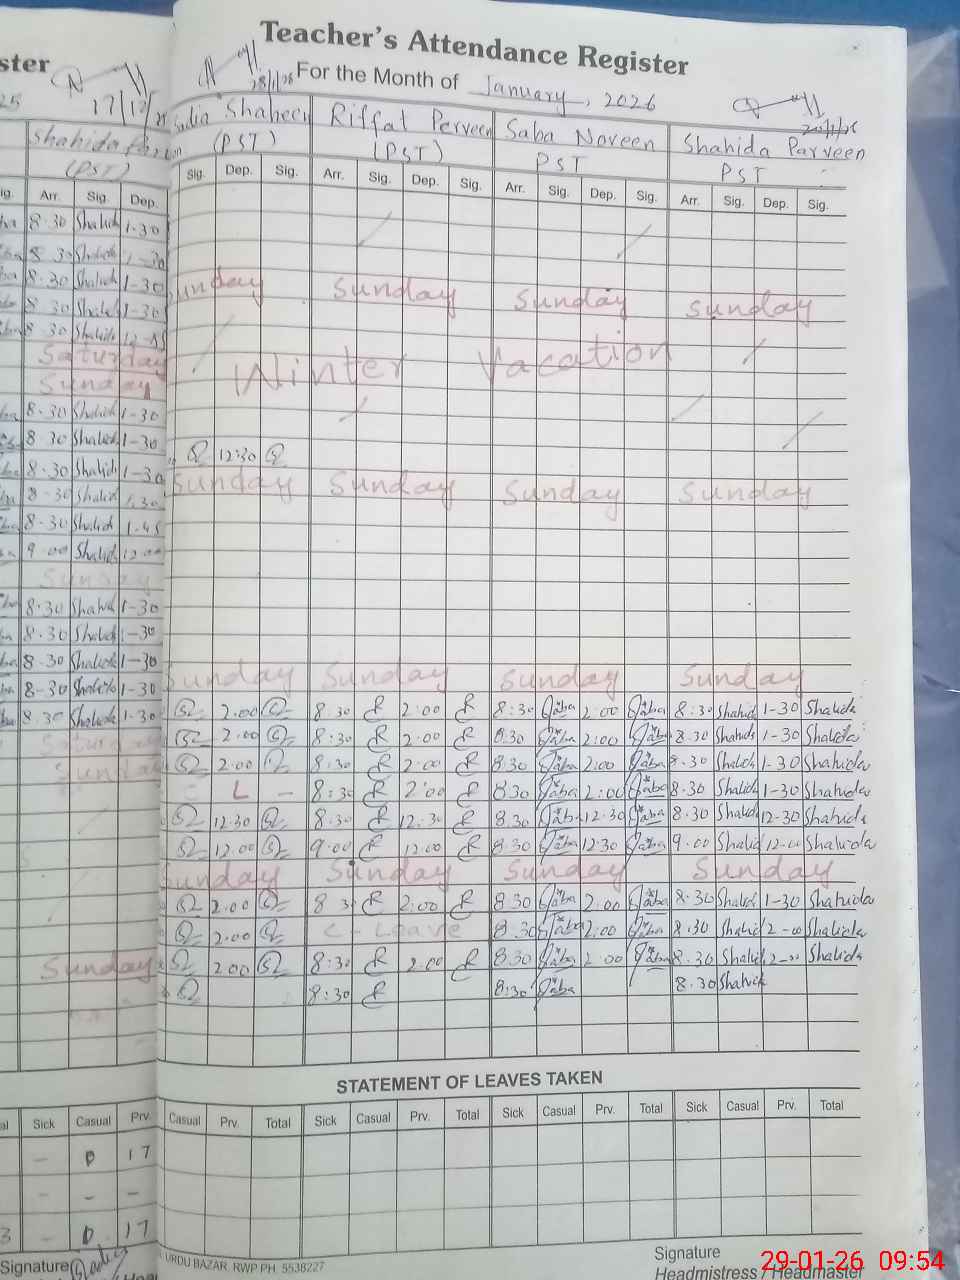 Teacher's Attendance Register
For the Month of January, 2026
28/1/26
Sadia Shaheen (PST) Riffat Parveen (PST) Saba Noreen PST Shahida Parveen PST
Sig. Dep. Sig. Arr. Sig. Dep. Sig. Arr. Sig. Dep. Sig. Arr. Sig. Dep. Sig.
Sunday Sunday Sunday Sunday
Winter Vacation
12:30
Sunday Sunday Sunday Sunday
Sunday Sunday Sunday Sunday
2.00 8:30 2:00 8:30 Saba 2:00 Saba 8:30 Shahida 1-30 Shahida
2.00 8:30 2:00 8:30 Saba 2:00 Saba 8.30 Shahida 1-30 Shahida
2:00 8:30 2:00 8:30 Saba 2:00 Saba 8.30 Shahida 1-30 Shahida
L - 8:30 2:00 8:30 Saba 2:00 Saba 8.30 Shahida 1-30 Shahida
12:30 8:30 12:30 8:30 Saba 12:30 Saba 8.30 Shahida 12-30 Shahida
12.00 9:00 12:00 8:30 Saba 12:30 Saba 9.00 Shahida 12-00 Shahida
Sunday Sunday Sunday Sunday
2.00 8:30 2:00 8:30 Saba 2:00 Saba 8.30 Shahida 1-30 Shahida
2.00 C-Leave 8:30 Saba 2:00 Saba 8.30 Shahida 2-00 Shahida
2.00 8:30 2.00 8:30 Saba 2:00 Saba 8.30 Shahida 2-00 Shahida
8:30 8:30 Saba 8.30 Shahida
STATEMENT OF LEAVES TAKEN
Casual Prv. Total Sick Casual Prv. Total Sick Casual Prv. Total Sick Casual Prv. Total
URDU BAZAR RWP PH. 5538227
Signature
Headmistress / Headmaster
29-01-26 09:54
ster
25
17/12/
Shahida Parveen
(PST)
Arr. Sig. Dep.
8.30 Shahida 1-30
8.30 Shahida 1-30
8.30 Shahida 1-30
8.30 Shahida 1-30
8.30 Shahida 12-45
Saturday
Sunday
8.30 Shahida 1-30
8.30 Shahida 1-30
8.30 Shahida 1-30
8.30 Shahida 1.30
8.30 Shahida 1.45
9.00 Shahida 12.00
Sunday
8.30 Shahida 1-30
8.30 Shahida 1-30
8.30 Shahida 1-30
8-30 Shahida 1-30
8.30 Shahida 1-30
Saturday
Sunday
Sunday
Sick Casual Prv.
- 0 17
- - -
3 - 0 17
Signature